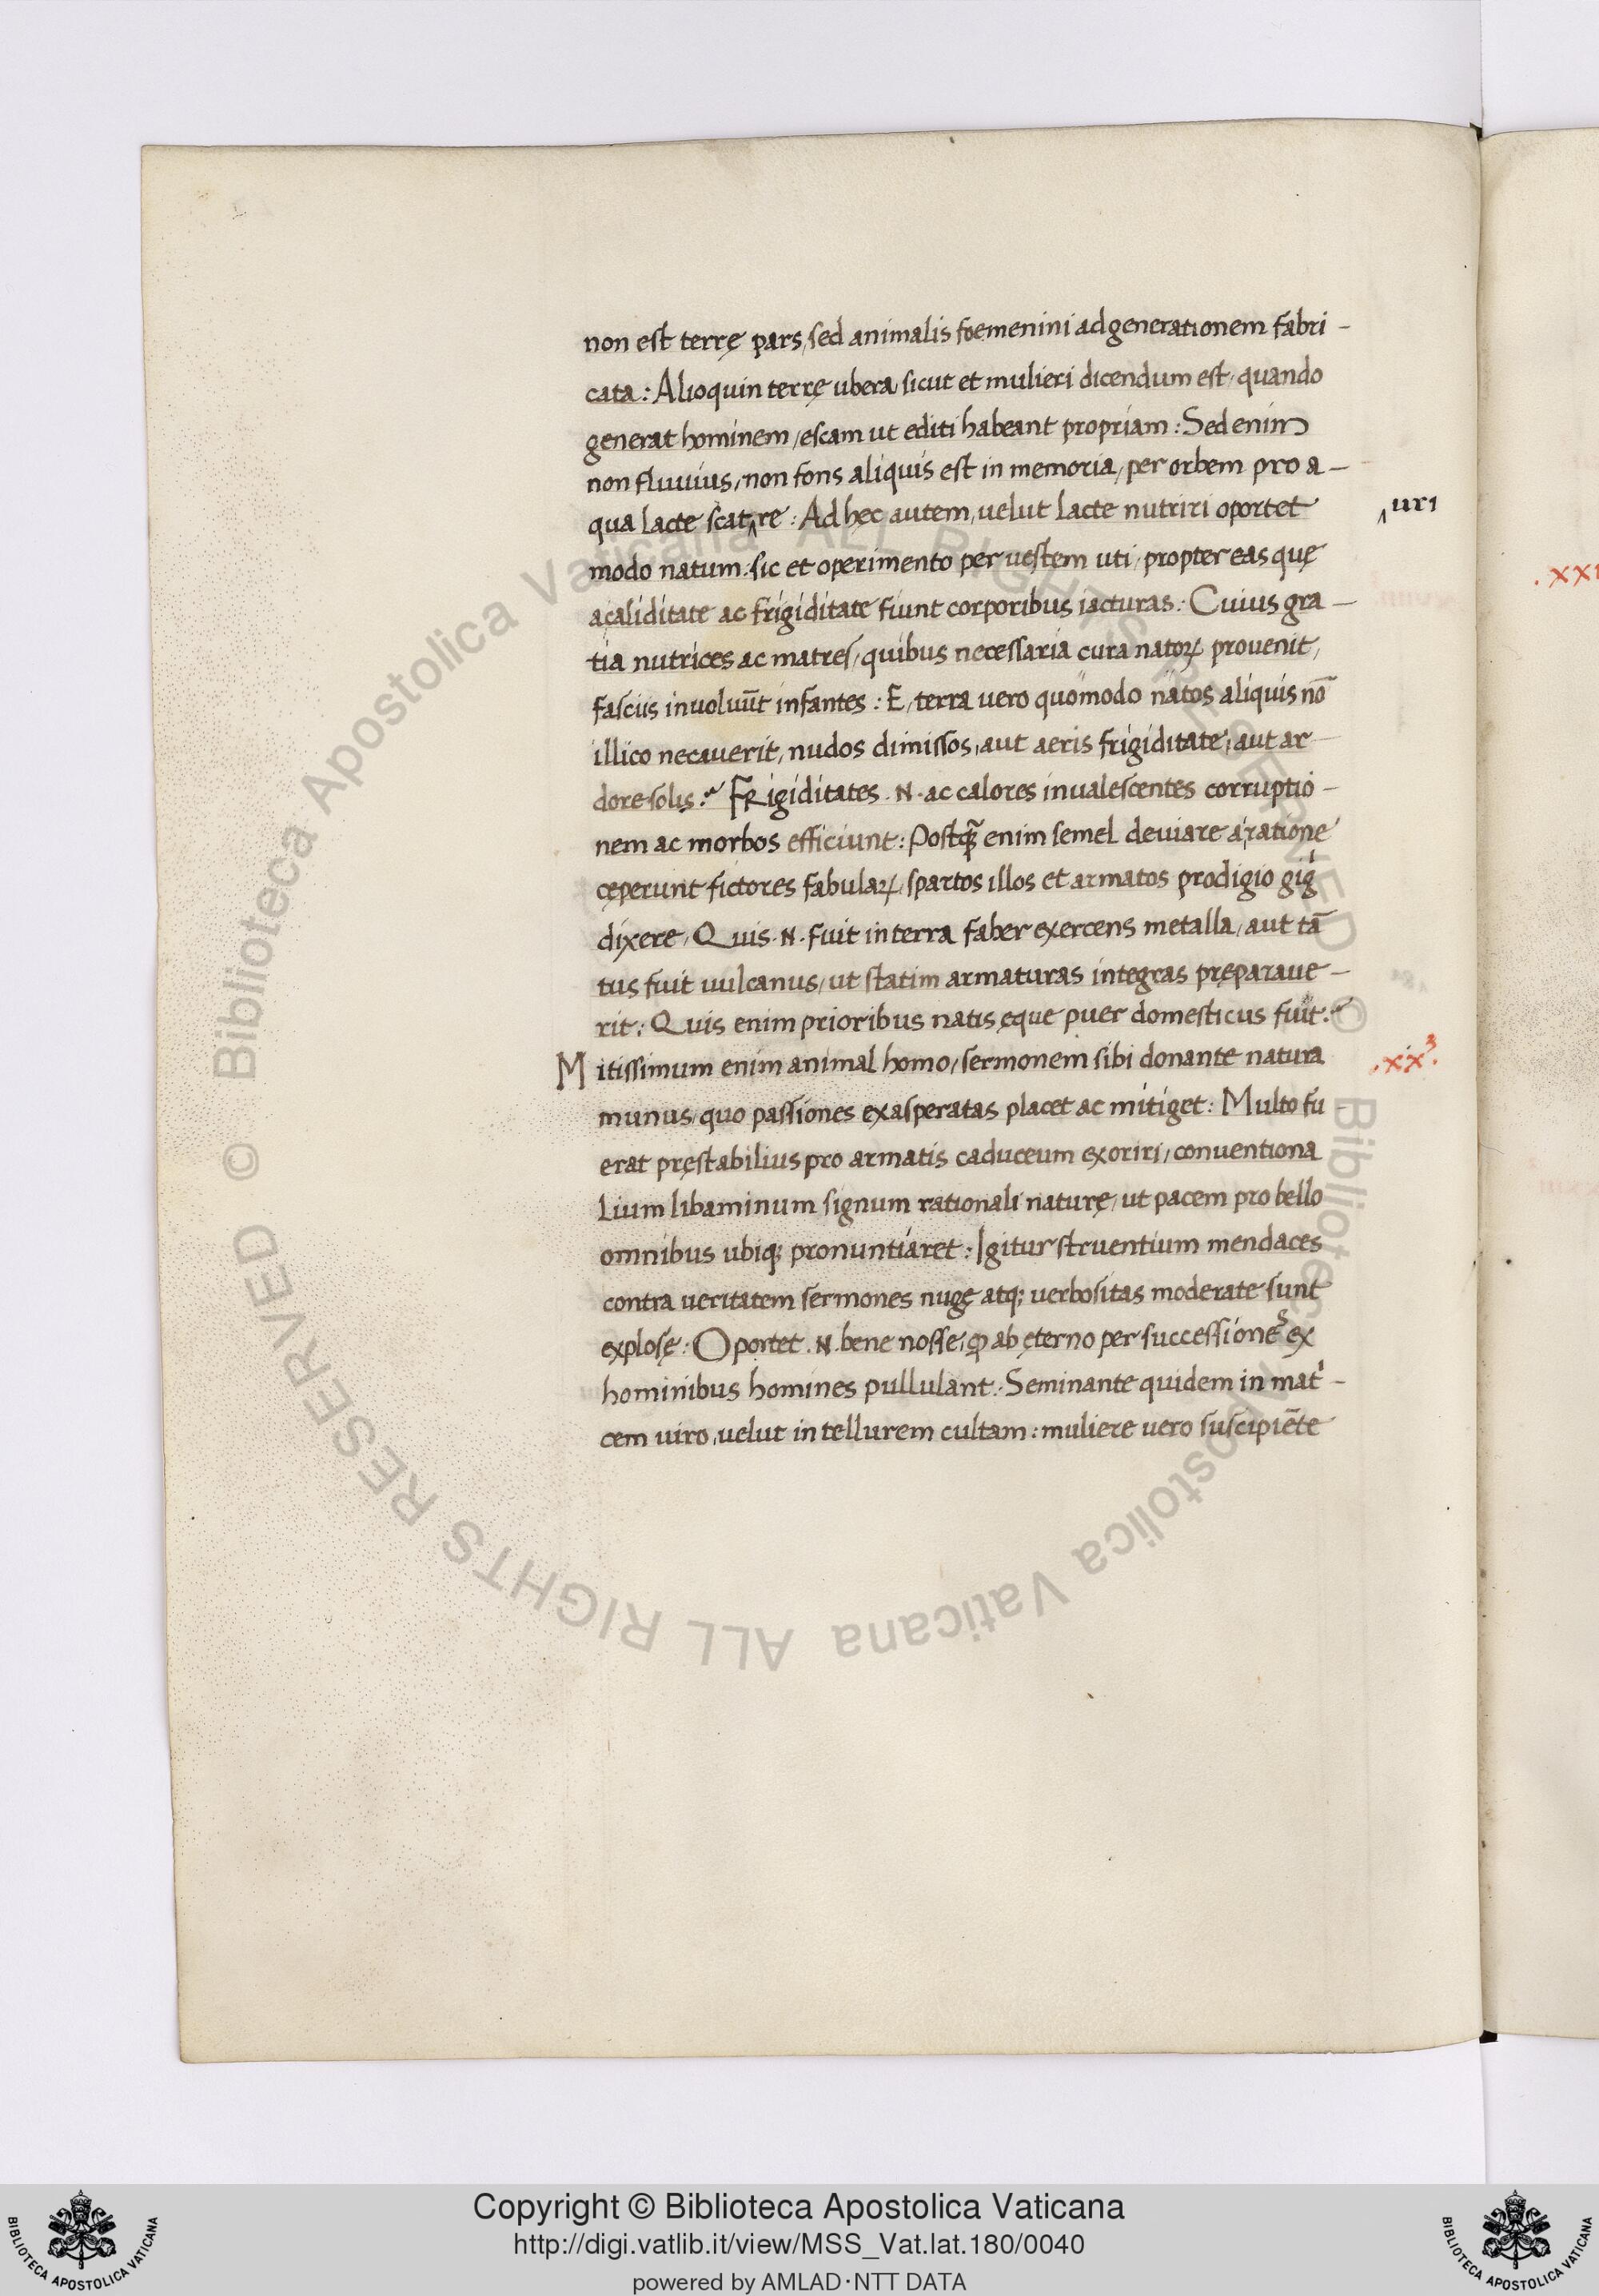 non est terrę pars, sed animalis foemenini ad generationem fabri-
cata: Alioquin terrę ubera, sicut et mulieri dicendum est, quando
generat hominem, escam ut editi habeant propriam: Sed enim
non fluuius, non fons aliquis est in memoria, per orbem pro a-
qua lacte scat‸re: Ad hęc autem, uelut lacte nutriri oportet
‸uri
modo natum: sic et operimento per uestem uti, propter eas quę
a caliditate ac frigiditate fiunt corporibus iacturas: Cuius gra-
tia nutrices ac matres, quibus necessaria cura natoꝝ prouenit,
fasciis inuoluūt infantes: E, terra uero quomodo natos aliquis nō
illico necauerit, nudos dimissos, aut aeris frigiditate, aut ar-
dore solis? Frigiditates .N. ac calores inualescentes corruptio-
nem ac morbos efficiunt: Postꝙ̄ enim semel deuiare a, ratione
cęperunt fictores fabulaꝝ, spartos illos et armatos prodigio gig̍
dixere, Quis .N. fuit in terra faber exercens metalla, aut tā
tus fuit uulcanus, ut statim armaturas integras pręparaue-
rit: Quis enim prioribus natis ęque puer domesticus fuit?
Mitissimum enim animal homo, sermonem sibi donante natura
.xix³.
munus, quo passiones exasperatas placet ac mitiget: Multo fu
erat pręstabilius pro armatis caduceum exoriri, conuentiona
lium libaminum signum rationali naturę, ut pacem pro bello
omnibus ubiq; pronuntiaret: Igitur struentium mendaces
contra ueritatem sermones nugę atq; uerbositas moderate sunt
explosę: Oportet .N. bene nosse, ꝙ ab ęterno per successiones ex
hominibus homines pullulant: Seminante quidem in mat̍-
cem uiro, uelut in tellurem cultam: muliere uero suscipiēte
.xxi
© Biblioteca Apostolica Vaticana ALL RIGHTS RESERVED © Biblioteca Apostolica Vaticana ALL RIGHTS RESERVED
Copyright © Biblioteca Apostolica Vaticana
http://digi.vatlib.it/view/MSS_Vat.lat.180/0040
powered by AMLAD·NTT DATA
BIBLIOTECA APOSTOLICA VATICANA
BIBLIOTECA APOSTOLICA VATICANA